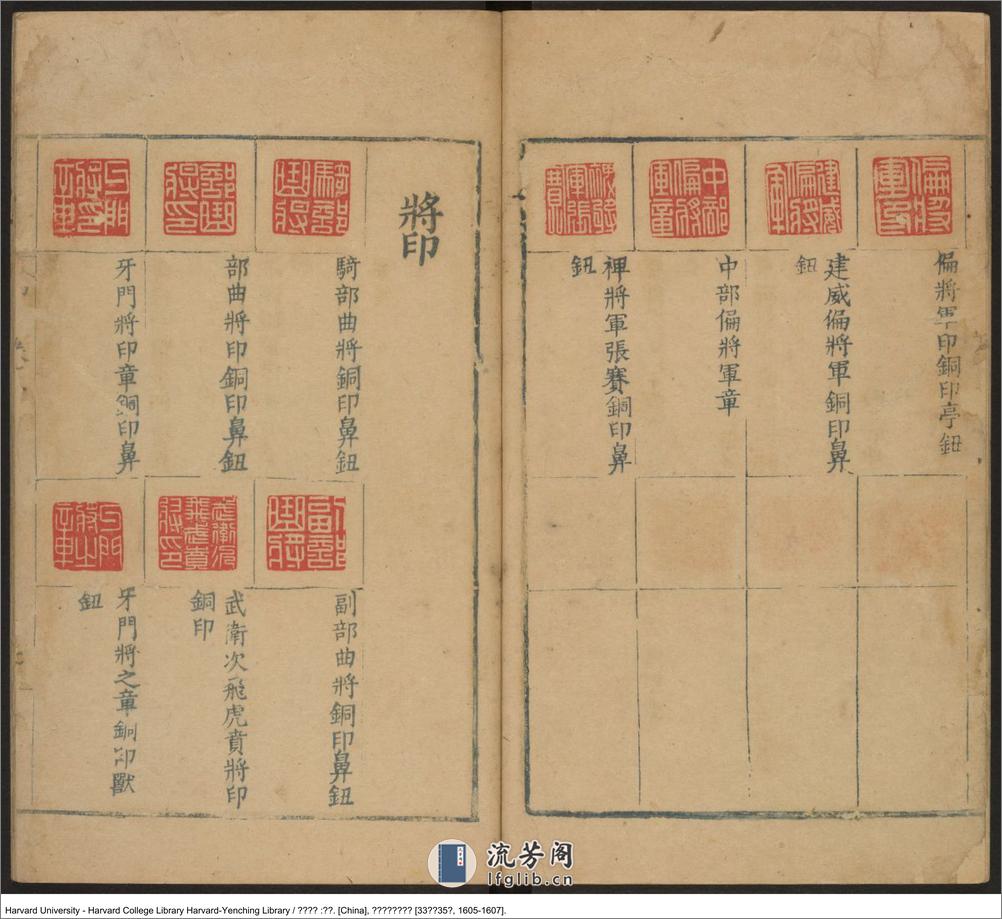 偏將軍印銅印亭鈕
建威偏將軍銅印鼻
鈕
中部偏將軍章
裨將軍張賽銅印鼻
鈕
將印
騎部曲將銅印鼻鈕
部曲將印銅印鼻鈕
牙門將印章銅印鼻
副部曲將銅印鼻鈕
武衛次飛虎賁將印
銅印
牙門將之章銅印獸
鈕
流芳阁
lfglib.cn
Harvard University - Harvard College Library Harvard-Yenching Library / ???? :??. [China], ???????? [33??35?, 1605-1607].